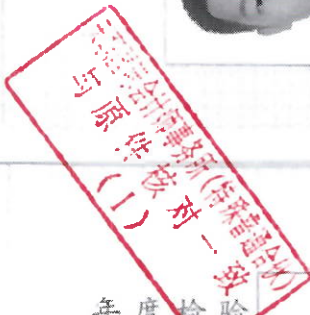 会计师事务所(特殊普通合伙)
与原件核对一致
(1)
年度检验